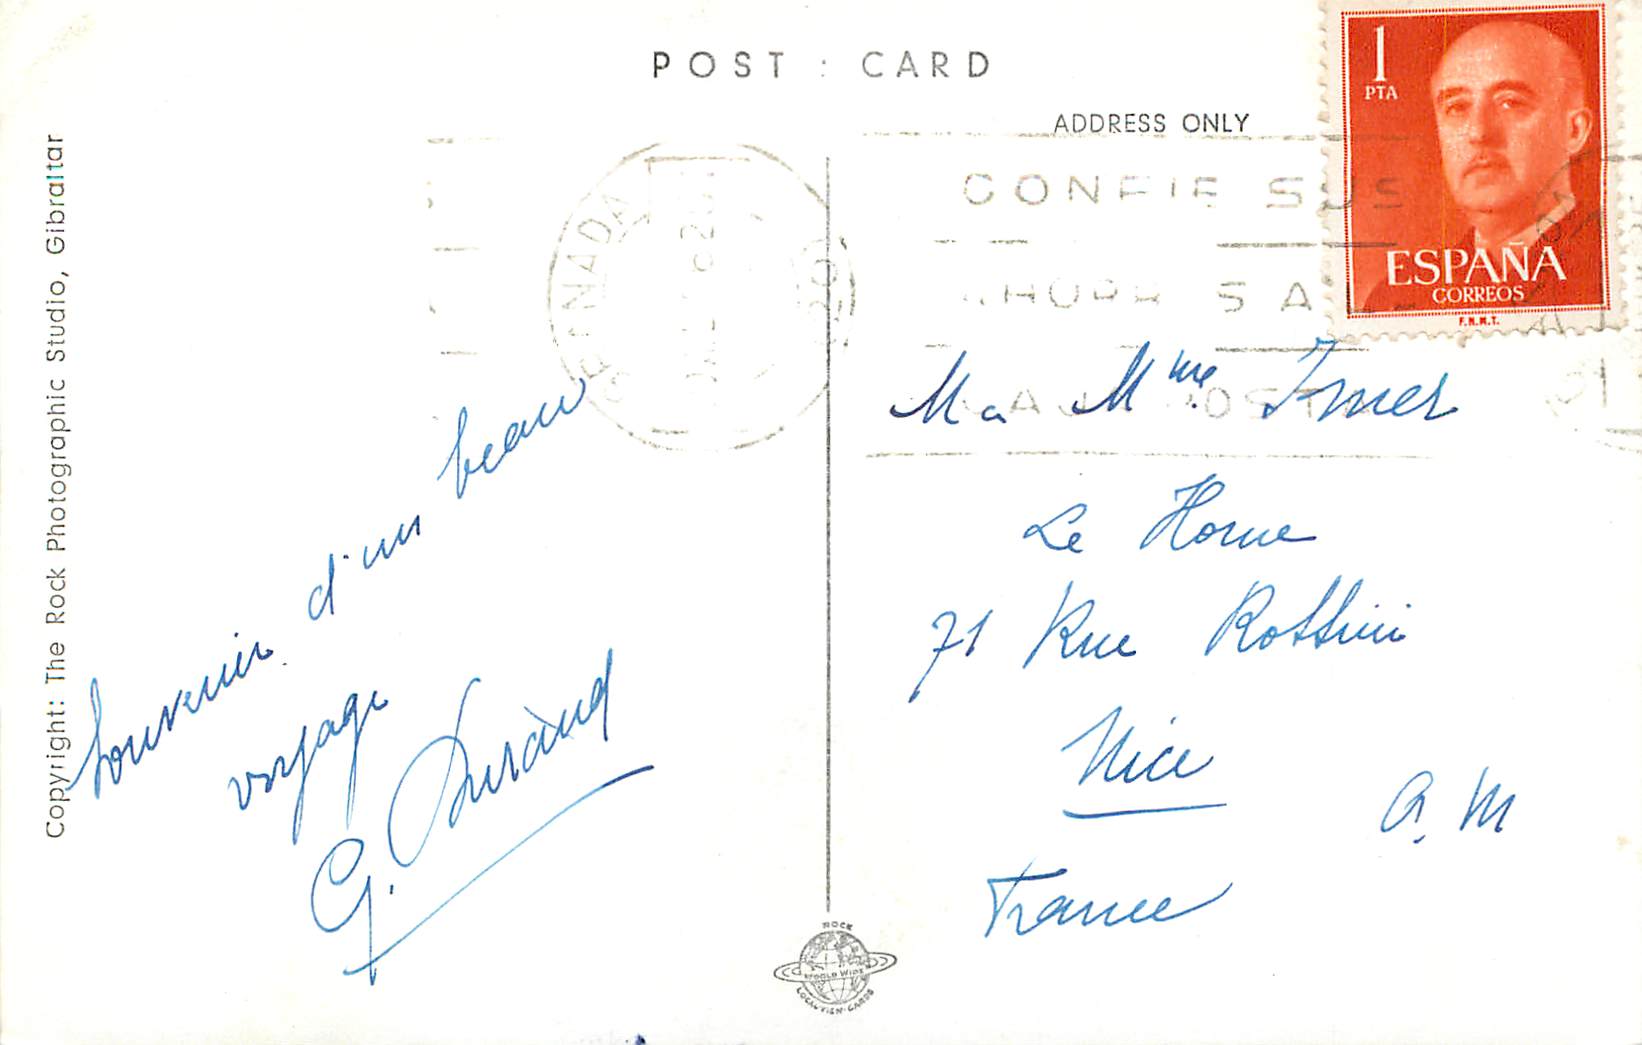 POST : CARD
ADDRESS ONLY
1
PTA
ESPAÑA
CORREOS
F.N.M.T.
CONFIE SUS
Copyright: The Rock Photographic Studio, Gibraltar
Souvenir d'un beau
voyage
G. Durand
Mme
Le Home
71 Rue Rossini
Nice
A. M
France
ROCK
WORLD WIDE
LOCAL VIEW-CARDS